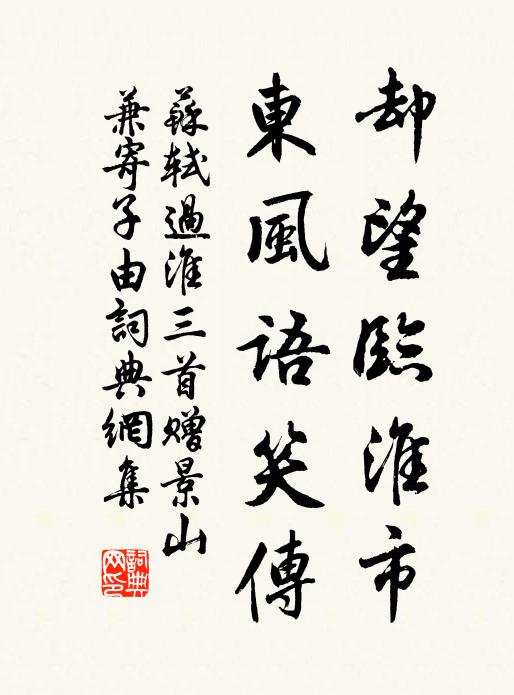 却望臨淮市
東風語笑傳
蘇軾過淮三首赠景山
兼寄子由詞典網集
詞典
网印